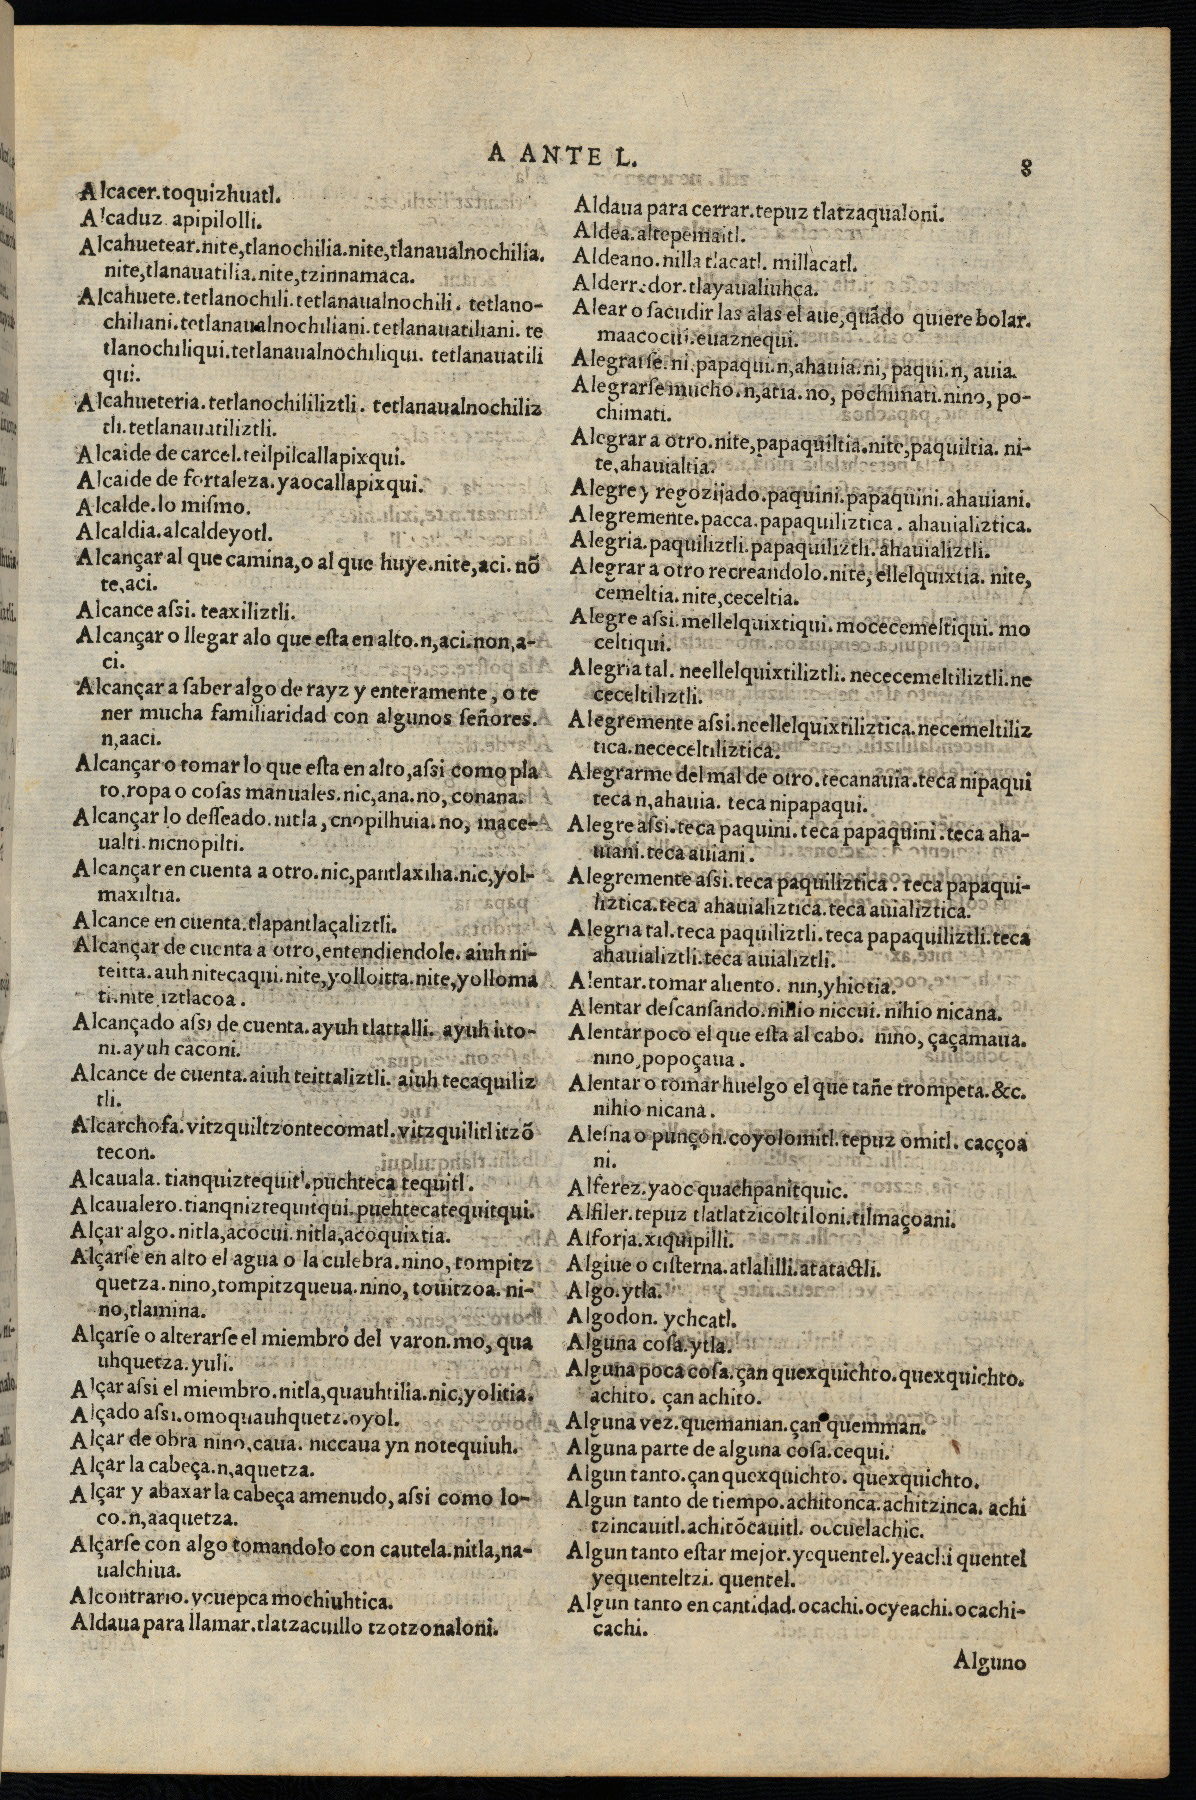 A ANTE L.
8
Alcacer.toquizhuatl.
Alcaduz. apipilolli.
Alcahuetear.nite,tlanochilia.nite,tlanaualnochilia.
nite,tlanauatilia.nite,tzinnamaca.
Alcahuete.tetlanochili.tetlanaualnochili. tetlano-
chiliani.tetlanaualnochiliani.tetlanauatiliani. te
tlanochiliqui.tetlanaualnochiliqui. tetlanauatili
qui.
Alcahueteria.tetlanochililiztli. tetlanaualnochiliz
tli.tetlanauatiliztli.
Alcaide de carcel.teilpilcallapixqui.
Alcaide de fortaleza.yaocallapixqui.
Alcalde.lo miſmo.
Alcaldia.alcaldeyotl.
Alcançar al que camina,o al que huye.nite,aci. nõ
te,aci.
Alcance aſsi. teaxiliztli.
Alcançar o llegar alo que eſta en alto.n,aci.non,a-
ci.
Alcançar a ſaber algo de rayz y enteramente, o te
ner mucha familiaridad con algunos ſeñores.
n,aaci.
Alcançar o tomar lo que eſta en alto,aſsi como pla
to,ropa o coſas manuales.nic,ana.no, conana.
Alcançar lo deſſeado.nitla, cnopilhuia.no, mace-
ualti.nicnopilti.
Alcançar en cuenta a otro.nic,pantlaxilia.nic,yol-
maxiltia.
Alcance en cuenta.tlapantlaçaliztli.
Alcançar de cuenta a otro,entendiendole. aiuh ni-
teitta.auh nitecaqui.nite,yolloitta.nite,yolloma
ti.nite,iztlacoa.
Alcançado aſsi de cuenta.ayuh tlattalli. ayuh itto-
ni.ayuh caconi.
Alcance de cuenta.aiuh teittaliztli. aiuh tecaquiliz
tli.
Alcarchofa.vitzquiltzontecomatl.vitzquilitl itzõ
tecon.
Alcauala. tianquiztequitl.puchteca tequitl.
Alcaualero.tianqniztequitqui.puehtecatequitqui.
Alçar algo.nitla,acocui.nitla,acoquixtia.
Alçarſe en alto el agua o la culebra.nino, tompitz
quetza.nino,tompitzqueua.nino, touitzoa. ni-
no,tlamina.
Alçarſe o alterarſe el miembro del varon.mo, qua
uhquetza.yuli.
Alçar aſsi el miembro.nitla,quauhtilia.nic,yolitia.
Alçado aſsi.omoquauhquetz.oyol.
Alçar de obra nino,caua. niccaua yn notequiuh.
Alçar la cabeça.n,aquetza.
Alçar y abaxar la cabeça amenudo, aſsi como lo-
co.n,aaquetza.
Alçarſe con algo tomandolo con cautela.nitla,na-
ualchiua.
Alcontrario.ycuepca mochiuhtica.
Aldaua para llamar.tlatzacuillo tzotzonaloni.
Aldaua para cerrar.tepuz tlatzaqualoni.
Aldea.altepemaitl.
Aldeano.nilla tlacatl. millacatl.
Alderredor.tlayaualiuhca.
Alear o ſacudir las alas el aue,quãdo quiere bolar.
maacocui.euaznequi.
Alegrarſe. ni,papaqui.n,ahauia.ni, paqui.n, auia.
Alegrarſe mucho.n,atia.no, pochimati.nino, po-
chimati.
Alegrar a otro.nite,papaquiltia.nite,paquiltia. ni-
te,ahauialtia.
Alegre y regozijado.paquini.papaquini.ahauiani.
Alegremente.pacca.papaquiliztica. ahauializtica.
Alegria.paquiliztli.papaquiliztli.ahauializtli.
Alegrar a otro recreandolo.nite, ellelquixtia. nite,
cemeltia.nite,ceceltia.
Alegre aſsi.mellelquixtiqui.mocecemeltiqui. mo
celtiqui.
Alegria tal. neellelquixtiliztli.nececemeltiliztli.ne
ceceltiliztli.
Alegremente aſsi.neellelquixtiliztica.necemeltiliz
tica.nececeltiliztica.
Alegrarme del mal de otro.tecanauia.teca nipaqui
teca n,ahauia. teca nipapaqui.
Alegre aſsi.teca paquini.teca papaquini.teca aha-
uiani.teca auiani.
Alegremente aſsi.teca paquiliztica. teca papaqui-
liztica.teca ahauializtica.teca auializtica.
Alegria tal.teca paquiliztli.teca papaquiliztli.teca
ahauializtli.teca auializtli.
Alentar.tomar aliento. nin,yhiotia.
Alentar deſcanſando.nihio niccui.nihio nicana.
Alentar poco el que eſta al cabo. nino, çaçamaua.
nino,popoçaua.
Alentar o tomar huelgo el que tañe trompeta.&c.
nihio nicana.
Aleſna o punçon.coyolomitl.tepuz omitl. cacçoa
ni.
Alferez.yaoc quachpanitquic.
Alfiler.tepuz tlatlatzicoltiloni.tilmaçoani.
Alforja.xiquipilli.
Algiue o ciſterna.atlalilli.atatactli.
Algo.ytla.
Algodon. ychcatl.
Alguna coſa.ytla.
Alguna poca coſa.çan quexquichto.quexquichto.
achito. çan achito.
Alguna vez.quemanian.çan quemman.
Alguna parte de alguna coſa.cequi.
Algun tanto.çan quexquichto. quexquichto.
Algun tanto de tiempo.achitonca.achitzinca. achi
tzincauitl.achitõcauitl. occuelachic.
Algun tanto eſtar mejor.yequentel.yeachi quentel
yequenteltzi. quentel.
Algun tanto en cantidad.ocachi.ocyeachi.ocachi-
cachi.
Alguno